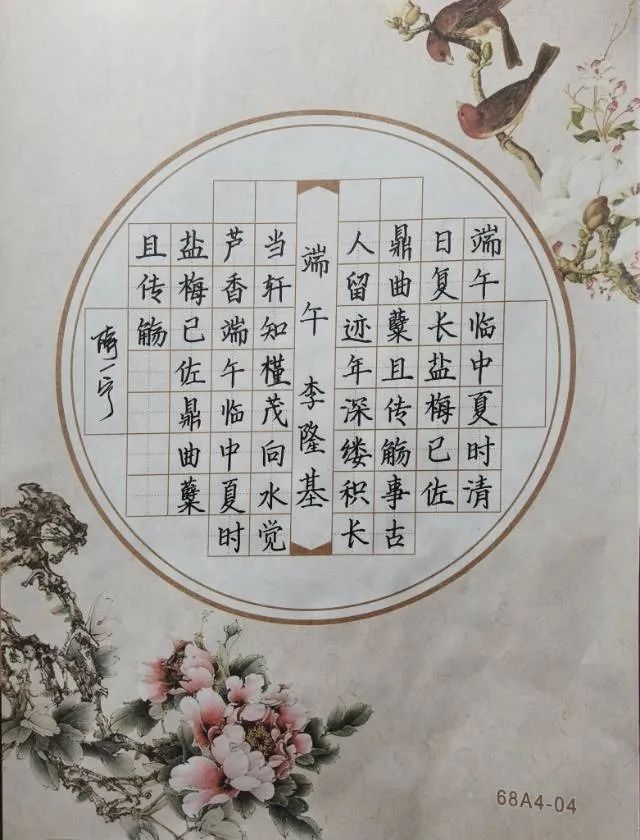 端午临中夏时清
日复长盐梅已佐
鼎曲糵且传觞事古
人留迹年深缕积长
端午 李隆基
当轩知槿茂向水觉
芦香端午临中夏时
盐梅已佐鼎曲糵
且传觞
68A4-04